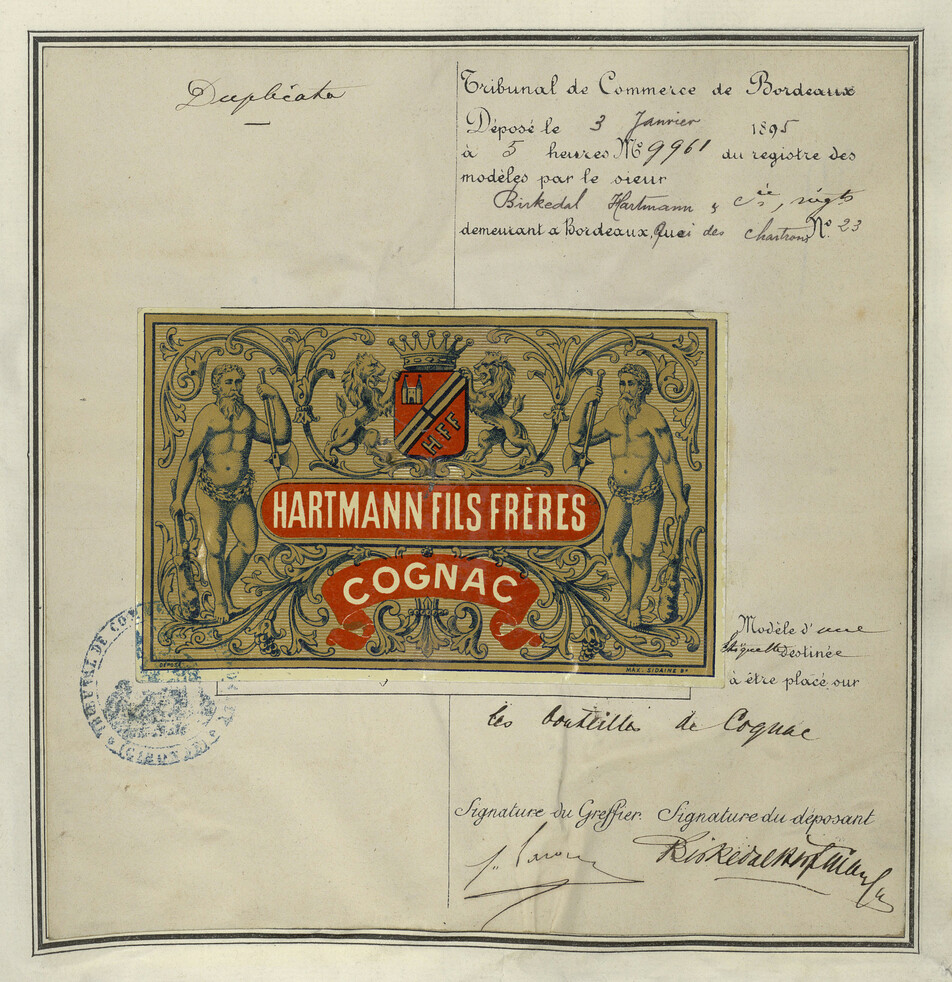 Duplicata
Tribunal de Commerce de Bordeaux
Déposé le 3 Janvier 1895
à 5 heures Nº 9961 du registre des
modèles par le sieur
Birkedal Hartmann & Cie, négts
demeurant à Bordeaux, Quai des chartrons Nº 23
HFF
HARTMANN FILS FRÈRES
COGNAC
DÉPOSÉ
MAX. SIDAINE Bx
TRIBUNAL DE COM
(GIRONDE)
Modèle d'une
étiquette destinée
à être placé sur
les bouteilles de Cognac
Signature du Greffier. Signature du déposant
Birkedal Hartmann